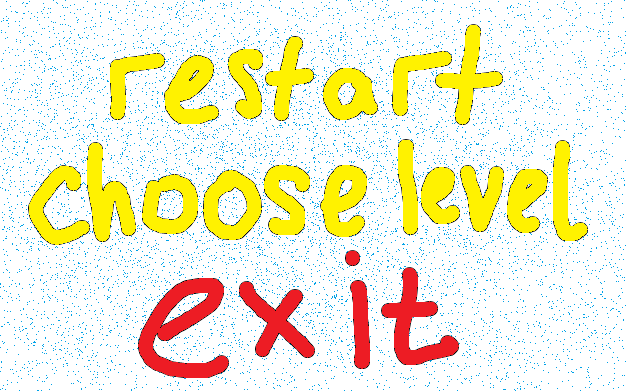 restart
choose level
exit